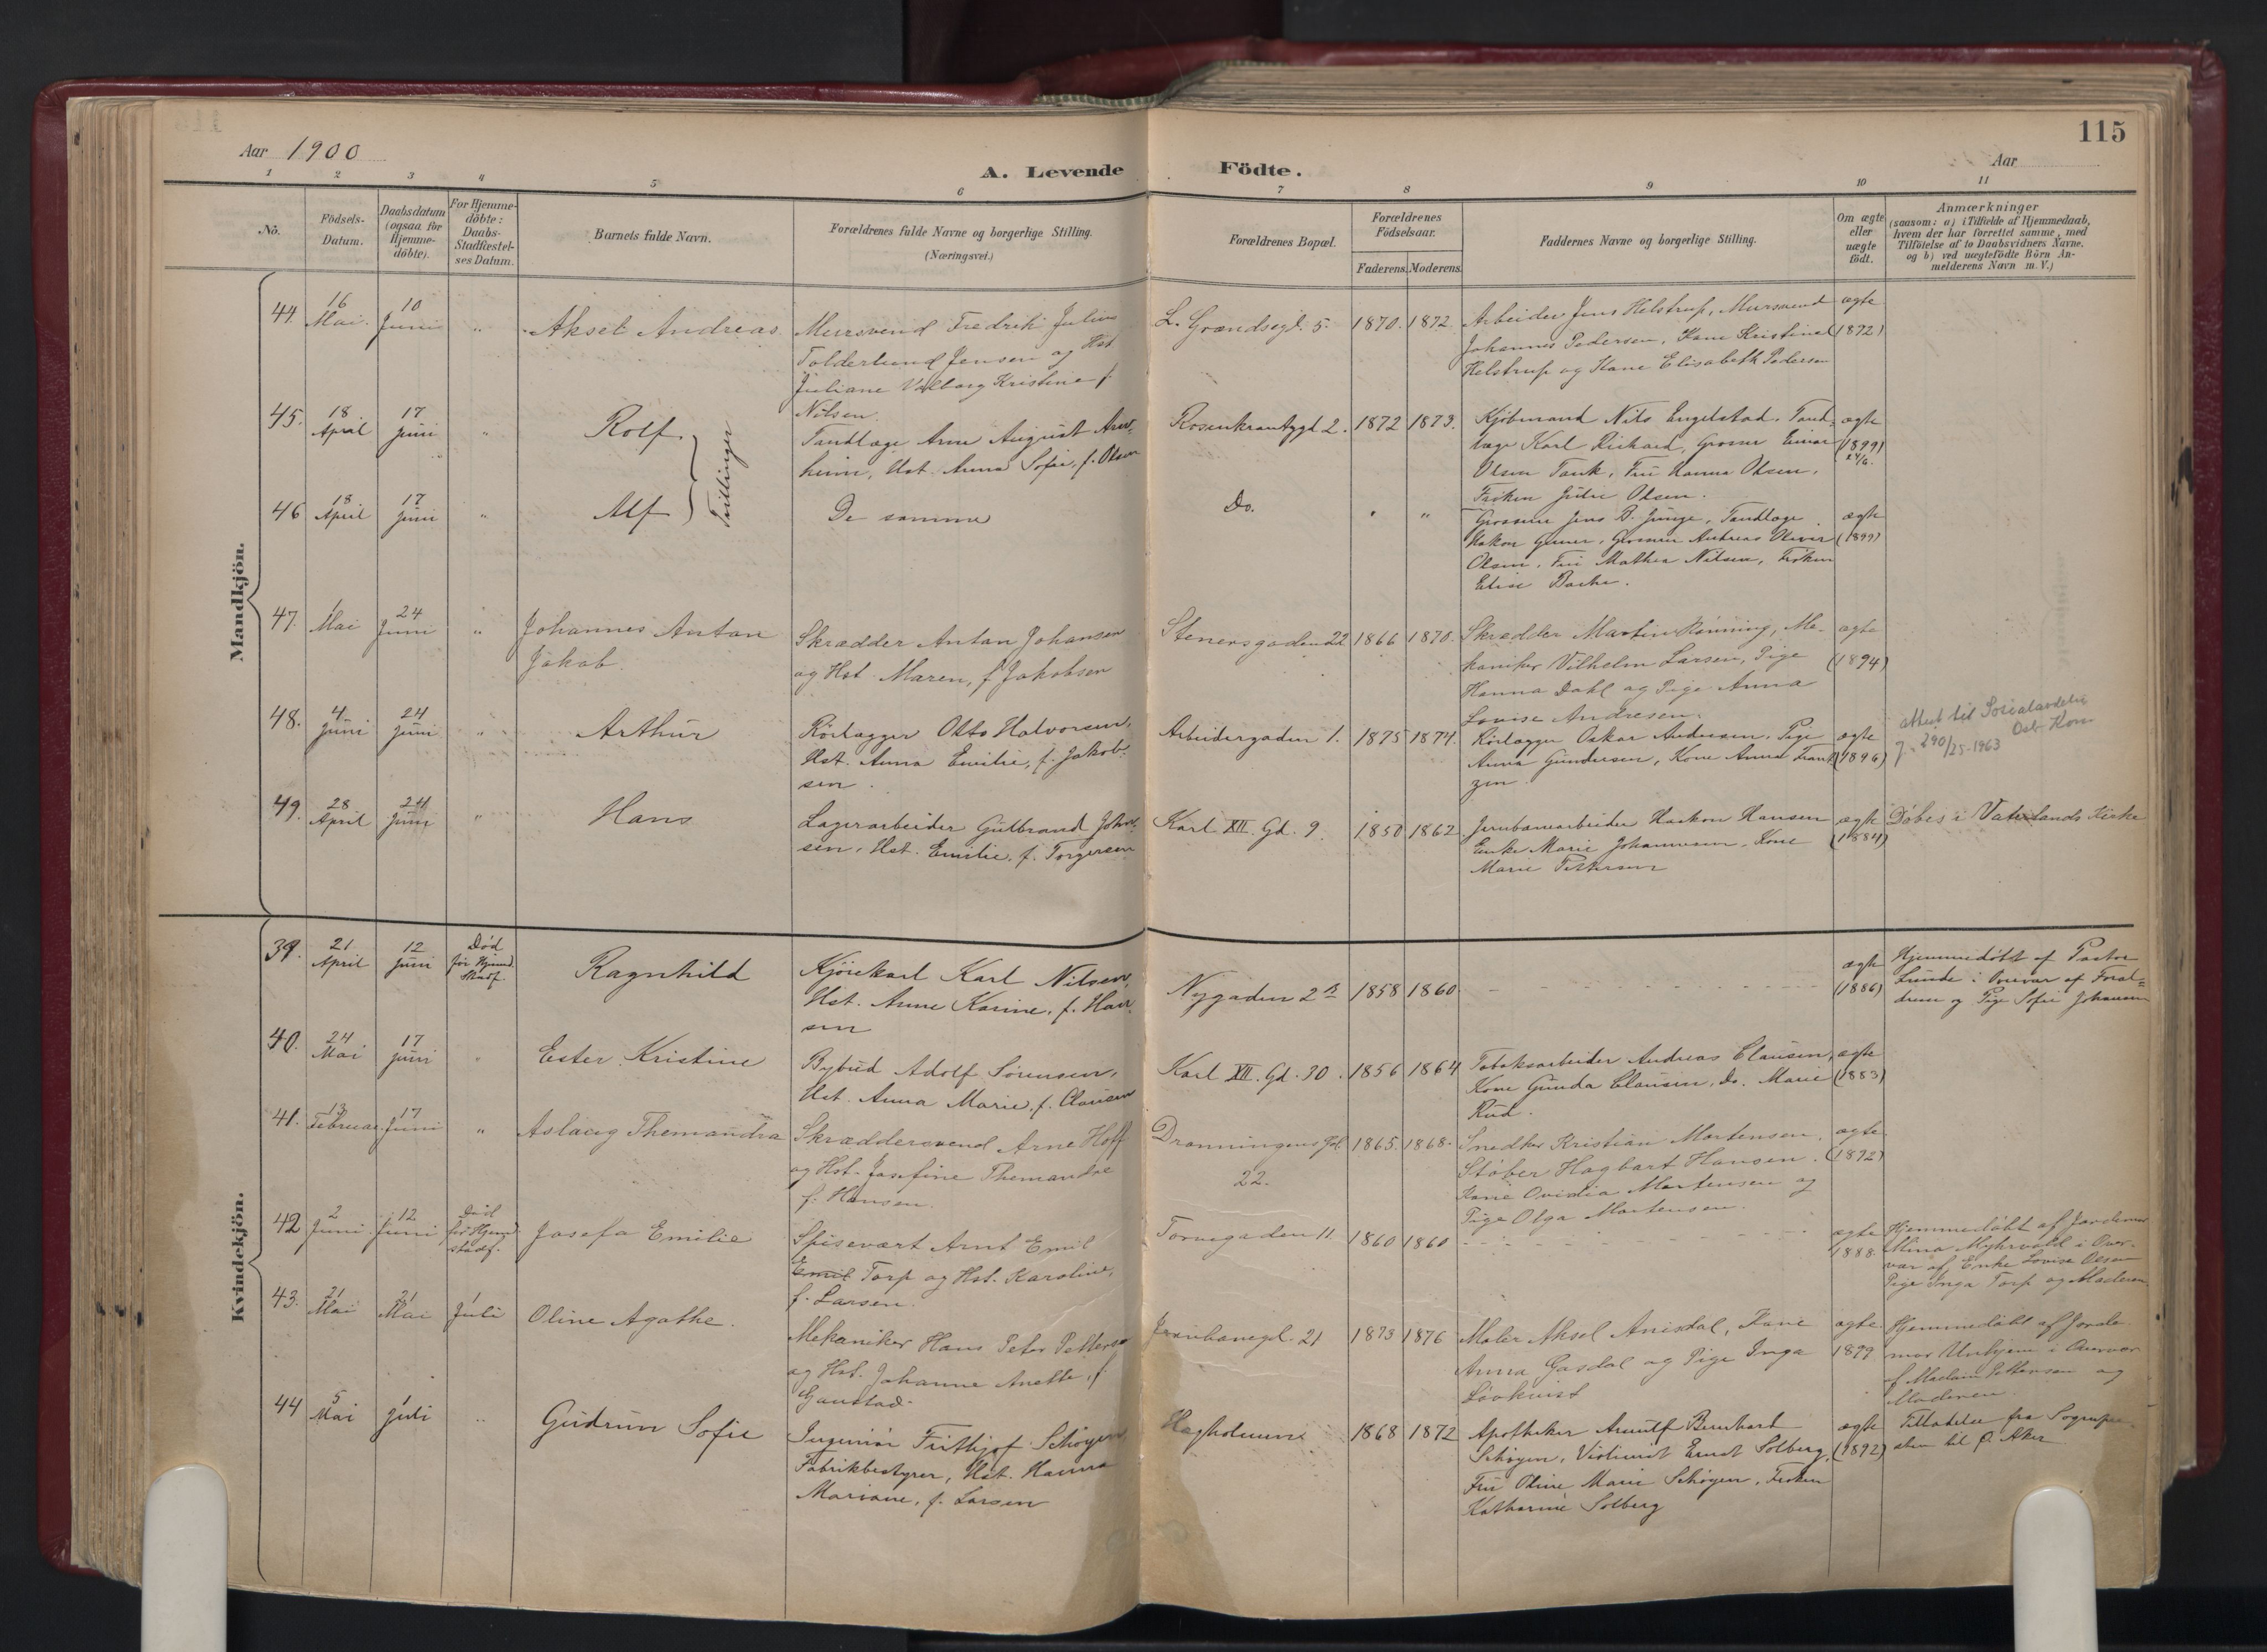 115
Aar 1900
Aar
A. Levende Födte.
1 2 3 4 5 6 7 8 9 10 11
No.
Födsels-Datum.
Daabsdatum (ogsaa for Hjemme-döbte).
For Hjemme-döbte: Daabs-Stadfæstel-ses Datum.
Barnets fulde Navn.
Forældrenes fulde Navne og borgerlige Stilling.
(Næringsvei.)
Forældrenes Bopæl.
Forældrenes Födselsaar.
Faderens. Moderens.
Faddernes Navne og borgerlige Stilling.
Om ægte eller uægte födt.
Anmærkninger
(saasom: a) i Tilfælde af Hjemmedaab,
hvem der har forrettet samme, med
Tilföielse af to Daabsvidners Navne.
og b) ved uægtefödte Börn An-
melderens Navn m. V.)
Mandkjön.
44. 16 Mai. 10 Juni " Aksel Andreas
Mursvend Fredrik Julius
Tolderlund Jensen og Hst
Juliane Valborg Kristine f.
Nilsen.
L. Grændsegd. 5. 1870. 1872.
Arbeider Jens Helstrup, Mursvend
Johannes Pedersen, Kone Kristine
Helstrup og Kone Elisabeth Pedersen
ægte (1892)
45. 18 April 17 Juni " Rolf. Tvillinger
Tandlæge Arne August Arn-
heim, Hst. Anna Sofie, f. Olsen
Rosenkrantzgd 2. 1872 1873.
Kjöbmand Nils Engelstad, Tand-
læge Karl Richard, Grosser Einar
Olsen Tank, Fru Hanna Olsen,
Fröken Julie Olsen.
ægte (1899)
46 18 April 17 Juni " Alf
De samme
Do. " "
Grosserer Jens B. Junge, Tandlæge
Hakon Gumer, Grosserer Andreas Oliver
Olsen, Fru Mathea Nilsen, Fröken
Elise Bache.
ægte (1899)
47. 1 Mai 24 Juni " Johannes Anton
Jakob.
Skrædder Anton Johansen
og Hst. Maren, f. Jakobsen
Stenersgaden 22 1866 1870.
Skrædder Martin Rönning, Me-
kaniker Vilhelm Larsen, Pige
Hanna Dahl og Pige Anna
Lovise Andresen.
ægte (1894)
48. 4 Juni 24 Juni " Arthur
Rörlægger Otto Halvorsen,
Hst. Anna Emilie, f. Jakob-
sen.
Arbeidergaden 1. 1875 1874.
Rörlægger Oskar Andersen, Pige
Anna Gundersen, Kone Anna Frant-
zen.
ægte (1896)
attest til Sosialavdeling
Oslo Kom
J. 290/25-1963
49. 28 April 24 Juni " Hans
Lagerarbeider Gulbrand Johan-
sen, Hst. Emilie, f. Torgersen
Karl XII. Gd. 9. 1850 1862.
Jernbanearbeider Haakon Hansen
Enke Marie Johannesen, Kone
Marie Pettersen
ægte (1884)
Döbes i Vaterlands Kirke
Kvindekjön.
39. 21 April 12 Juni Död för Hjemd. Stadf. Ragnhild
Kjörekarl Karl Nilsen,
Hst. Anne Karine, f. Han-
sen
Nygaden 2 B 1858 1860
ægte (1886)
Hjemmedöbt af Pastor
Lunde i Overvær af Foræl-
drene og Pige Sofie Johansen
40. 24 Mai 17 Juni " Ester Kristine
Bybud Adolf Sörensen,
Hst. Anna Marie, f. Clausen
Karl XII. Gd. 30. 1856 1864
Tobaksarbeider Andreas Clausen,
Kone Gunda Clausen, do. Marie
Rud.
ægte (1883)
41. 13 Februar 17 Juni " Aslaug Themandra
Skræddersvend Arne Hoff
og Hst. Josefine Themandra
f. Hansen.
Dronningens Gd. 22. 1865. 1868.
Snedker Kristian Mortensen,
Stöber Hagbart Hansen.
Kone Ovidia Mortensen og
Pige Olga Mortensen.
ægte (1892)
42 2 Juni 12 Juni Död för Hjemd. stadf. Josefa Emilie
Spisevært Arnt Emil
Emil Torp og Hst. Karoline,
f. Larsen.
Torvegaden 11 1860 1860
ægte 1888.
Hjemmedöbt af Jordemor
Mina Myhrvold i Over-
vær af Enke Lovise Olsen
Pige Inga Torp og Moderen
43. 21 Mai 21 Mai 1 Juli Oline Agathe.
Mekaniker Hans Peter Pettersen
og Hst. Johanne Anette, f.
Ganstad.
Jernbanegd. 21 1873 1876
Maler Aksel Anisdal, Kone
Anna Gasdal og Pige Inga
Lövkvist
ægte. 1899
Hjemmedöbt af Jorde-
mor Unhjem i Overvær
af Madam Pettersen og
Moderen.
44 5 Mai 1 Juli " Gudrun Sofie
Ingeniör Frithjof Schöyen,
Fabrikbestyrer, Hst. Hanna
Mariane, f. Larsen
Hegholmene 1868 1872
Apotheker Arnulf Bernhard
Schöyen, Violinist Ernst Solberg,
Fru Oline Marie Schöyen, Fröken
Katharine Solberg
ægte (1892)
Tilladelse fra Sognepre-
sten til Ö. Aker